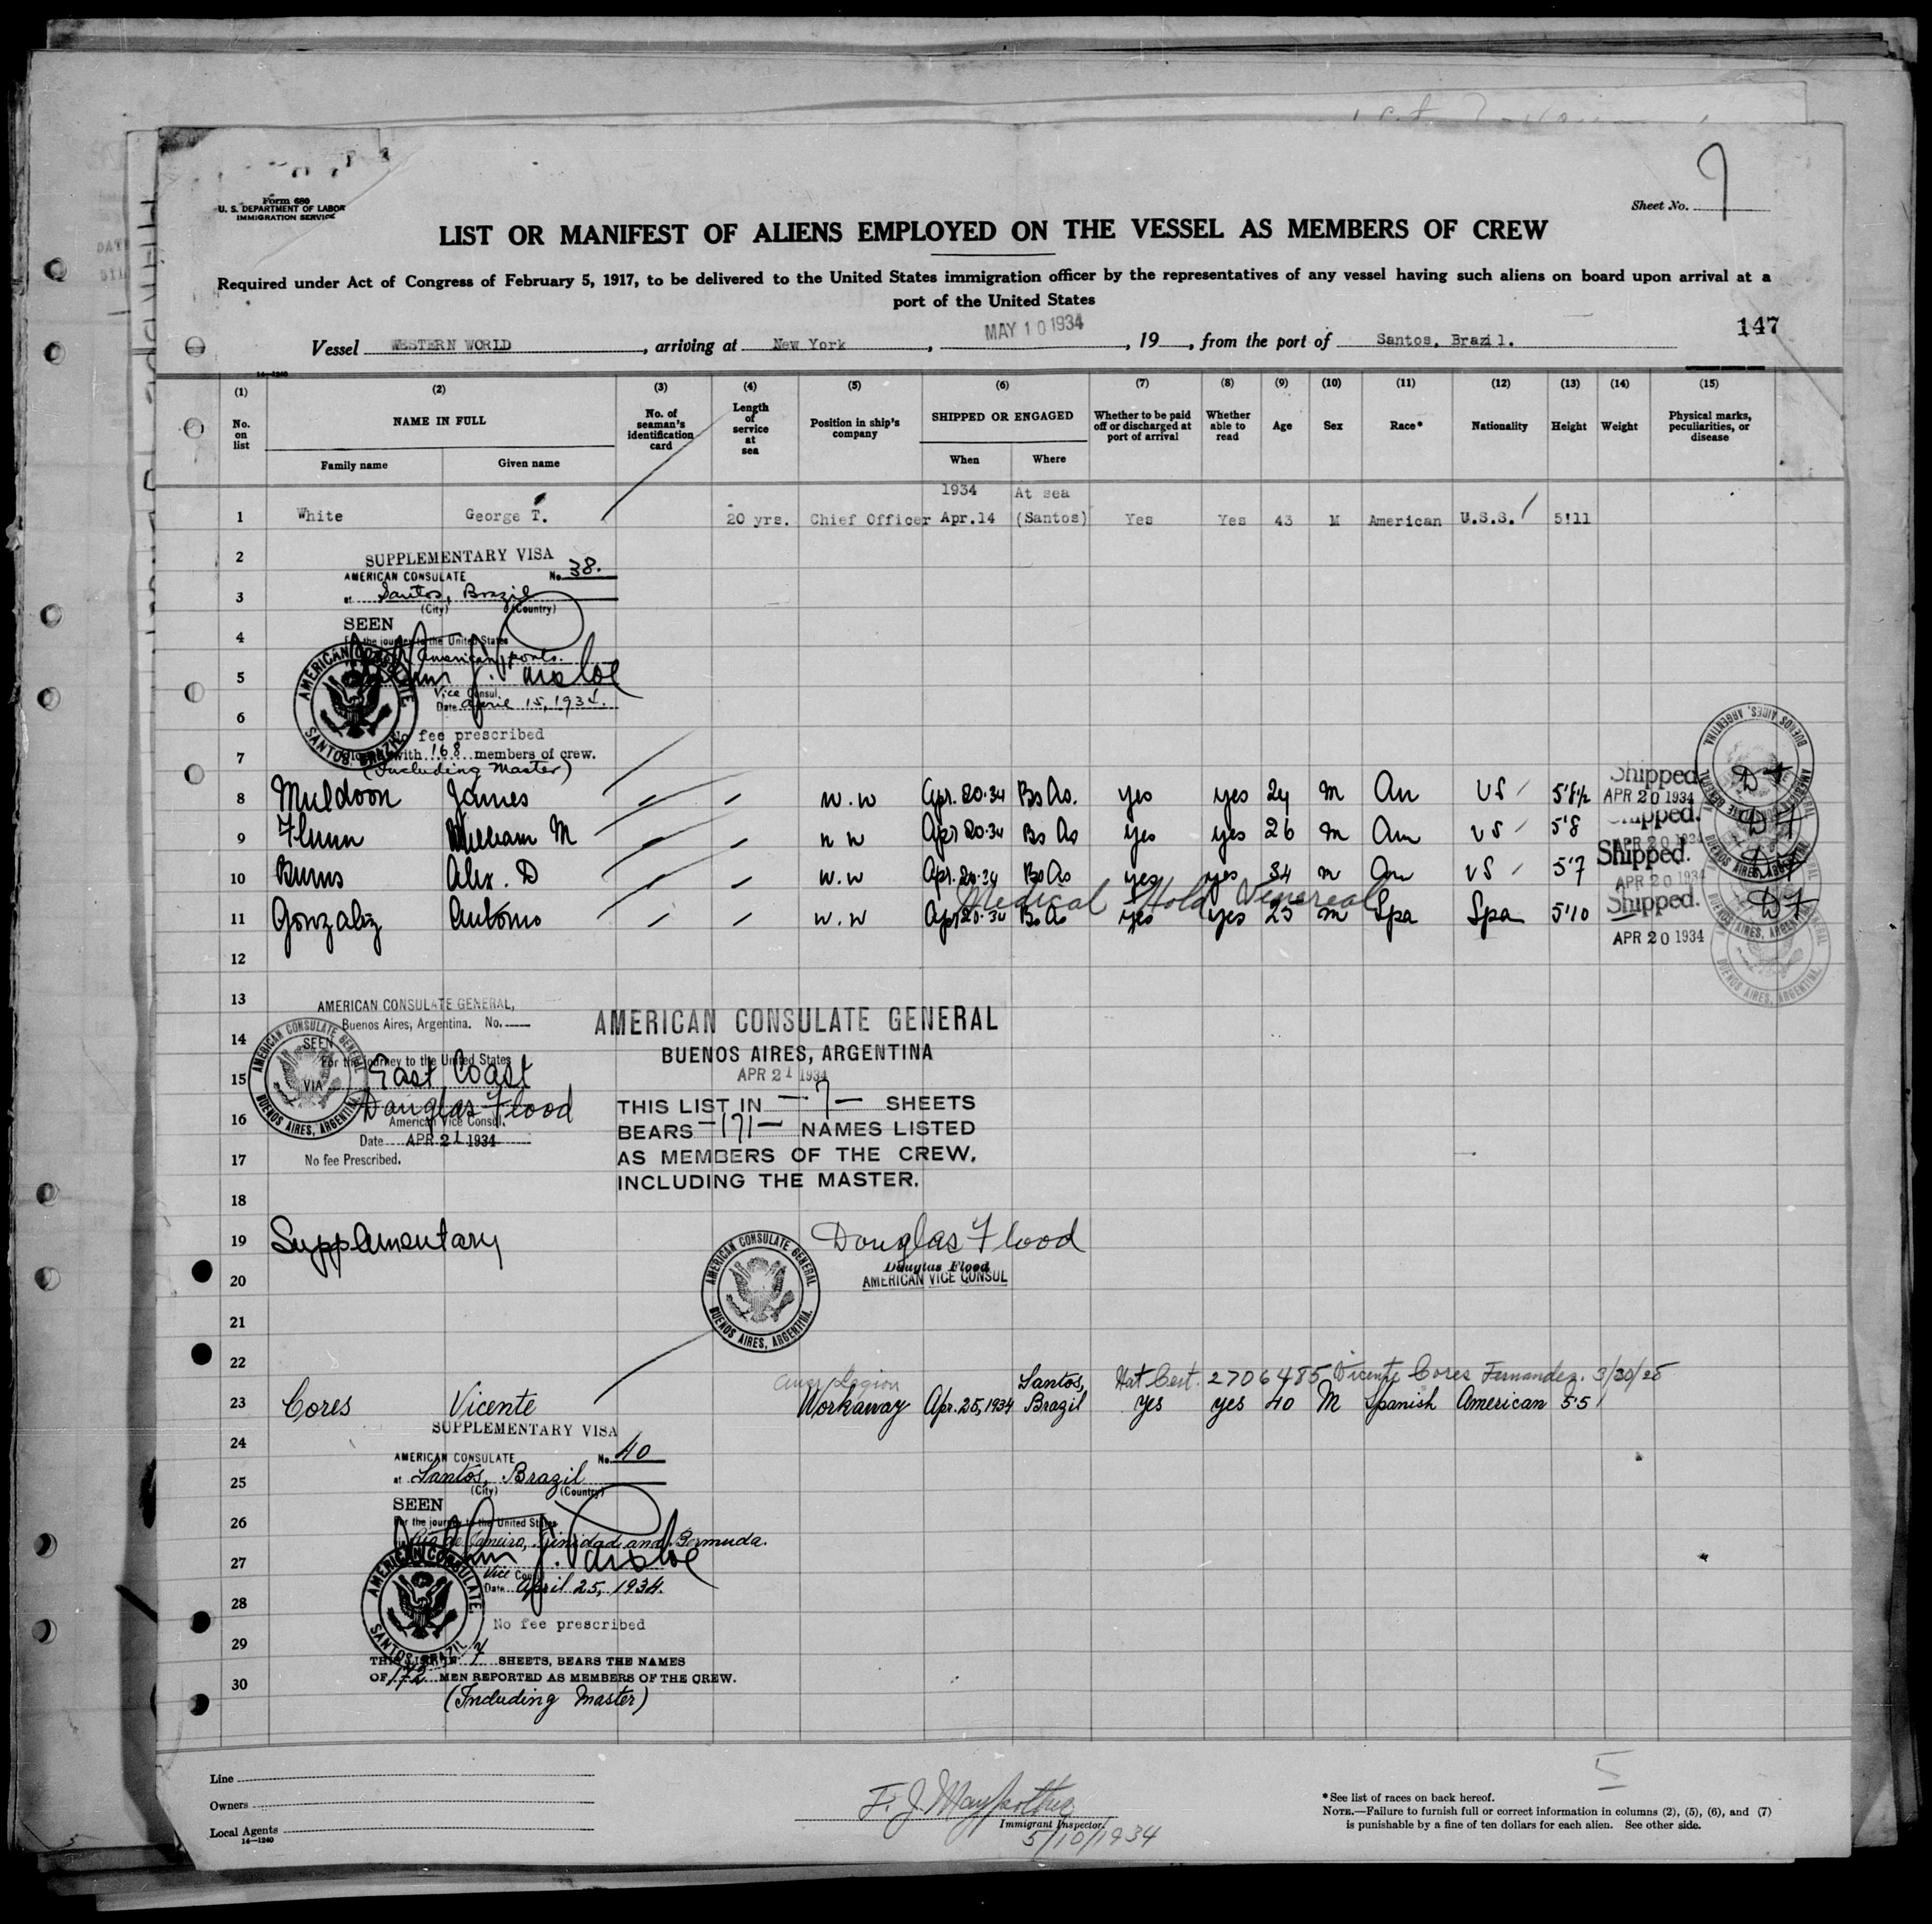 Form 680
U. S. DEPARTMENT OF LABOR
IMMIGRATION SERVICE
Sheet No. 7
LIST OR MANIFEST OF ALIENS EMPLOYED ON THE VESSEL AS MEMBERS OF CREW
Required under Act of Congress of February 5, 1917, to be delivered to the United States immigration officer by the representatives of any vessel having such aliens on board upon arrival at a
port of the United States
147
Vessel WESTERN WORLD, arriving at New York, MAY 10 1934, 19, from the port of Santos, Brazil.
14-1240
(1) (2) (3) (4) (5) (6) (7) (8) (9) (10) (11) (12) (13) (14) (15)
No. on list NAME IN FULL No. of seaman's identification card Length of service at sea Position in ship's company SHIPPED OR ENGAGED Whether to be paid off or discharged at port of arrival Whether able to read Age Sex Race* Nationality Height Weight Physical marks, peculiarities, or disease
Family name Given name When Where
1934 At sea
1 White George T. 20 yrs. Chief Officer Apr.14 (Santos) Yes Yes 43 M American U.S.S. 5'11
2 SUPPLEMENTARY VISA
AMERICAN CONSULATE No. 38.
3 at Santos, Brazil
(City) (Country)
SEEN
4 For the journey to the United States
American ports.
5
Vice Consul.
Date April 15, 1934.
6
No fee prescribed
7 with 168 members of crew.
(Including Master)
AMERICAN CONSULATE, SANTOS, BRAZIL
8 Muldoon James w.w Apr. 20-34 Bs As. yes yes 24 m Am US 5'8½ Shipped APR 20 1934 DF
9 Flynn William M w w Apr 20-34 Bs As yes yes 26 m Am US 5'8 Shipped. APR 20 1934 DF
10 Burns Alex. D w.w Apr. 20-34 Bs As yes yes 34 m Am US 5'7 Shipped. APR 20 1934 DF
Medical Hold Venereal
11 Gonzalez Antonio w.w Apr 20-34 Bs As yes yes 25 m Spa Spa 5'10 Shipped. APR 20 1934 DF
AMERICAN CONSULATE GENERAL BUENOS AIRES, ARGENTINA
12
13 AMERICAN CONSULATE GENERAL,
Buenos Aires, Argentina. No.
14 SEEN
For the journey to the United States
15 VIA East Coast
Douglas Flood
16 American Vice Consul.
Date APR 21 1934
17 No fee Prescribed.
AMERICAN CONSULATE GENERAL BUENOS AIRES, ARGENTINA
AMERICAN CONSULATE GENERAL
BUENOS AIRES, ARGENTINA
APR 21 1934
THIS LIST IN -7- SHEETS
BEARS -171- NAMES LISTED
AS MEMBERS OF THE CREW,
INCLUDING THE MASTER.
18
19 Supplementary
Douglas Flood
Douglas Flood
20 AMERICAN VICE CONSUL
AMERICAN CONSULATE GENERAL BUENOS AIRES, ARGENTINA.
21
22 Amer Legion Santos, Nat Cert. 2706485 Vicente Cores Fernandez. 3/30/28
23 Cores Vicente Workaway Apr. 25, 1934 Brazil yes yes 40 M Spanish American 5'5
SUPPLEMENTARY VISA
24
AMERICAN CONSULATE No. 40
25 at Santos, Brazil
(City) (Country)
SEEN
26 For the journey to the United States
Rio de Janeiro, Trinidad and Bermuda.
27
Vice Consul
Date April 25, 1934.
28
No fee prescribed
AMERICAN CONSULATE, SANTOS, BRAZIL
29
THIS LIST IN 7 SHEETS, BEARS THE NAMES
30 OF 172 MEN REPORTED AS MEMBERS OF THE CREW.
(Including Master)
Line
Owners
Local Agents
14-1240
Immigrant Inspector.
5/10/1934
5
*See list of races on back hereof.
NOTE.—Failure to furnish full or correct information in columns (2), (5), (6), and (7)
is punishable by a fine of ten dollars for each alien. See other side.